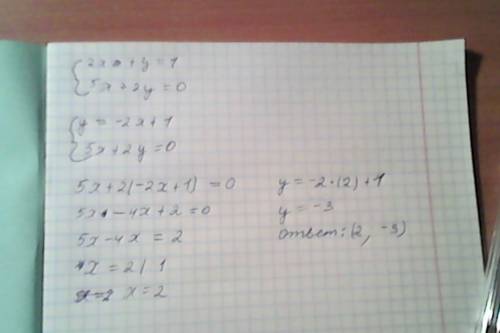 2x + y = 1
5x + 2y = 0
y = -2x + 1
5x + 2y = 0
5x + 2(-2x + 1) = 0
5x - 4x + 2 = 0
5x - 4x = 2
x = 2 | 1
x = 2
y = -2 · (2) + 1
y = -3
ответ: (2, -3)